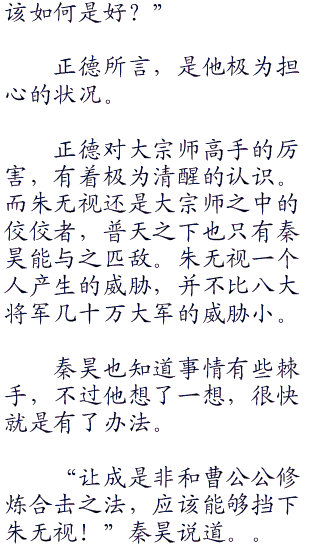 该如何是好？”
正德所言，是他极为担
心的状况。
正德对大宗师高手的厉
害，有着极为清醒的认识。
而朱无视还是大宗师之中的
佼佼者，普天之下也只有秦
昊能与之匹敌。朱无视一个
人产生的威胁，并不比八大
将军几十万大军的威胁小。
秦昊也知道事情有些棘
手，不过他想了一想，很快
就是有了办法。
“让成是非和曹公公修
炼合击之法，应该能够挡下
朱无视！”秦昊说道。。